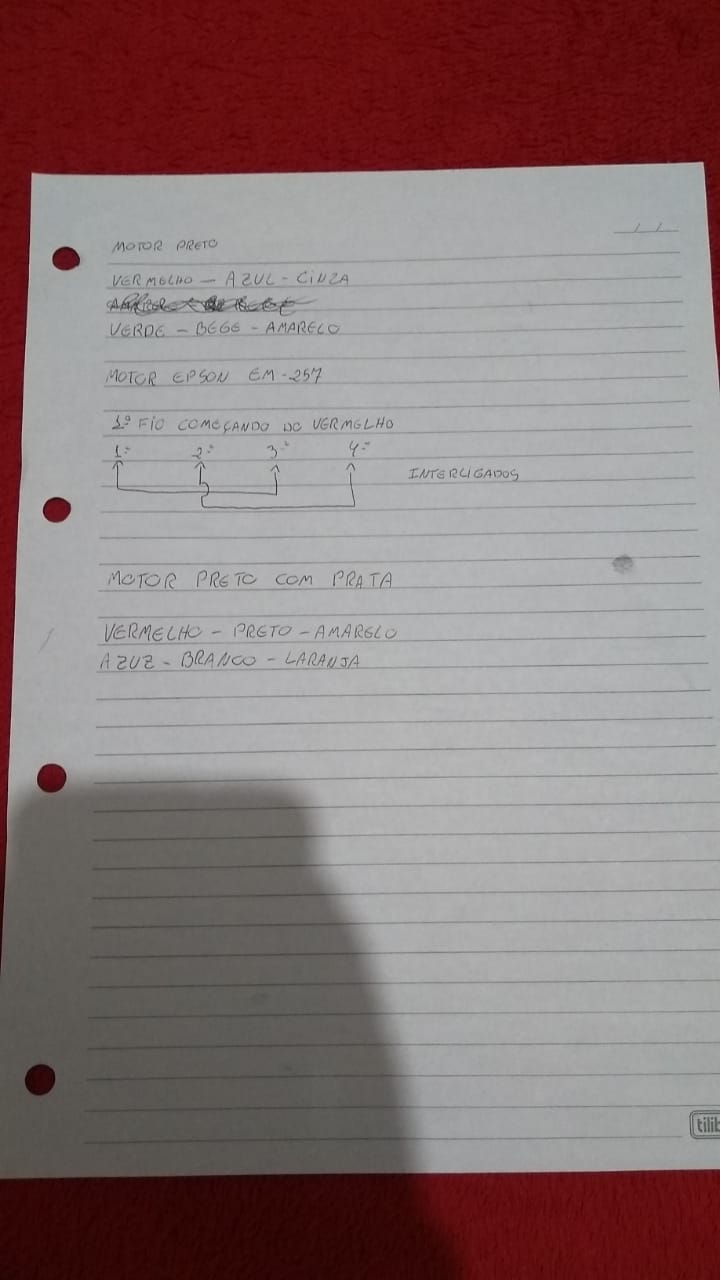 MOTOR PRETO
VERMELHO - AZUL - CINZA
VERDE - BEGE - AMARELO
MOTOR EPSON EM-257
1º FIO COMEÇANDO DO VERMELHO
1º 2º 3º 4º
INTERLIGADOS
MOTOR PRETO COM PRATA
VERMELHO - PRETO - AMARELO
AZUZ - BRANCO - LARANJA